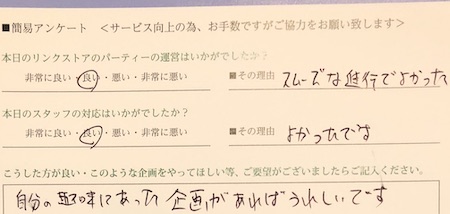 ■簡易アンケート ＜サービス向上の為、お手数ですがご協力をお願い致します＞
本日のリンクストアのパーティーの運営はいかがでしたか？
非常に良い・良い・悪い・非常に悪い ■その理由 スムーズな進行でよかった
本日のスタッフの対応はいかがでしたか？
非常に良い・良い・悪い・非常に悪い ■その理由 よかったです
こうした方が良い・このような企画をやってほしい等、ご要望がございましたらご記入ください。
自分の趣味にあった企画があればうれしいです